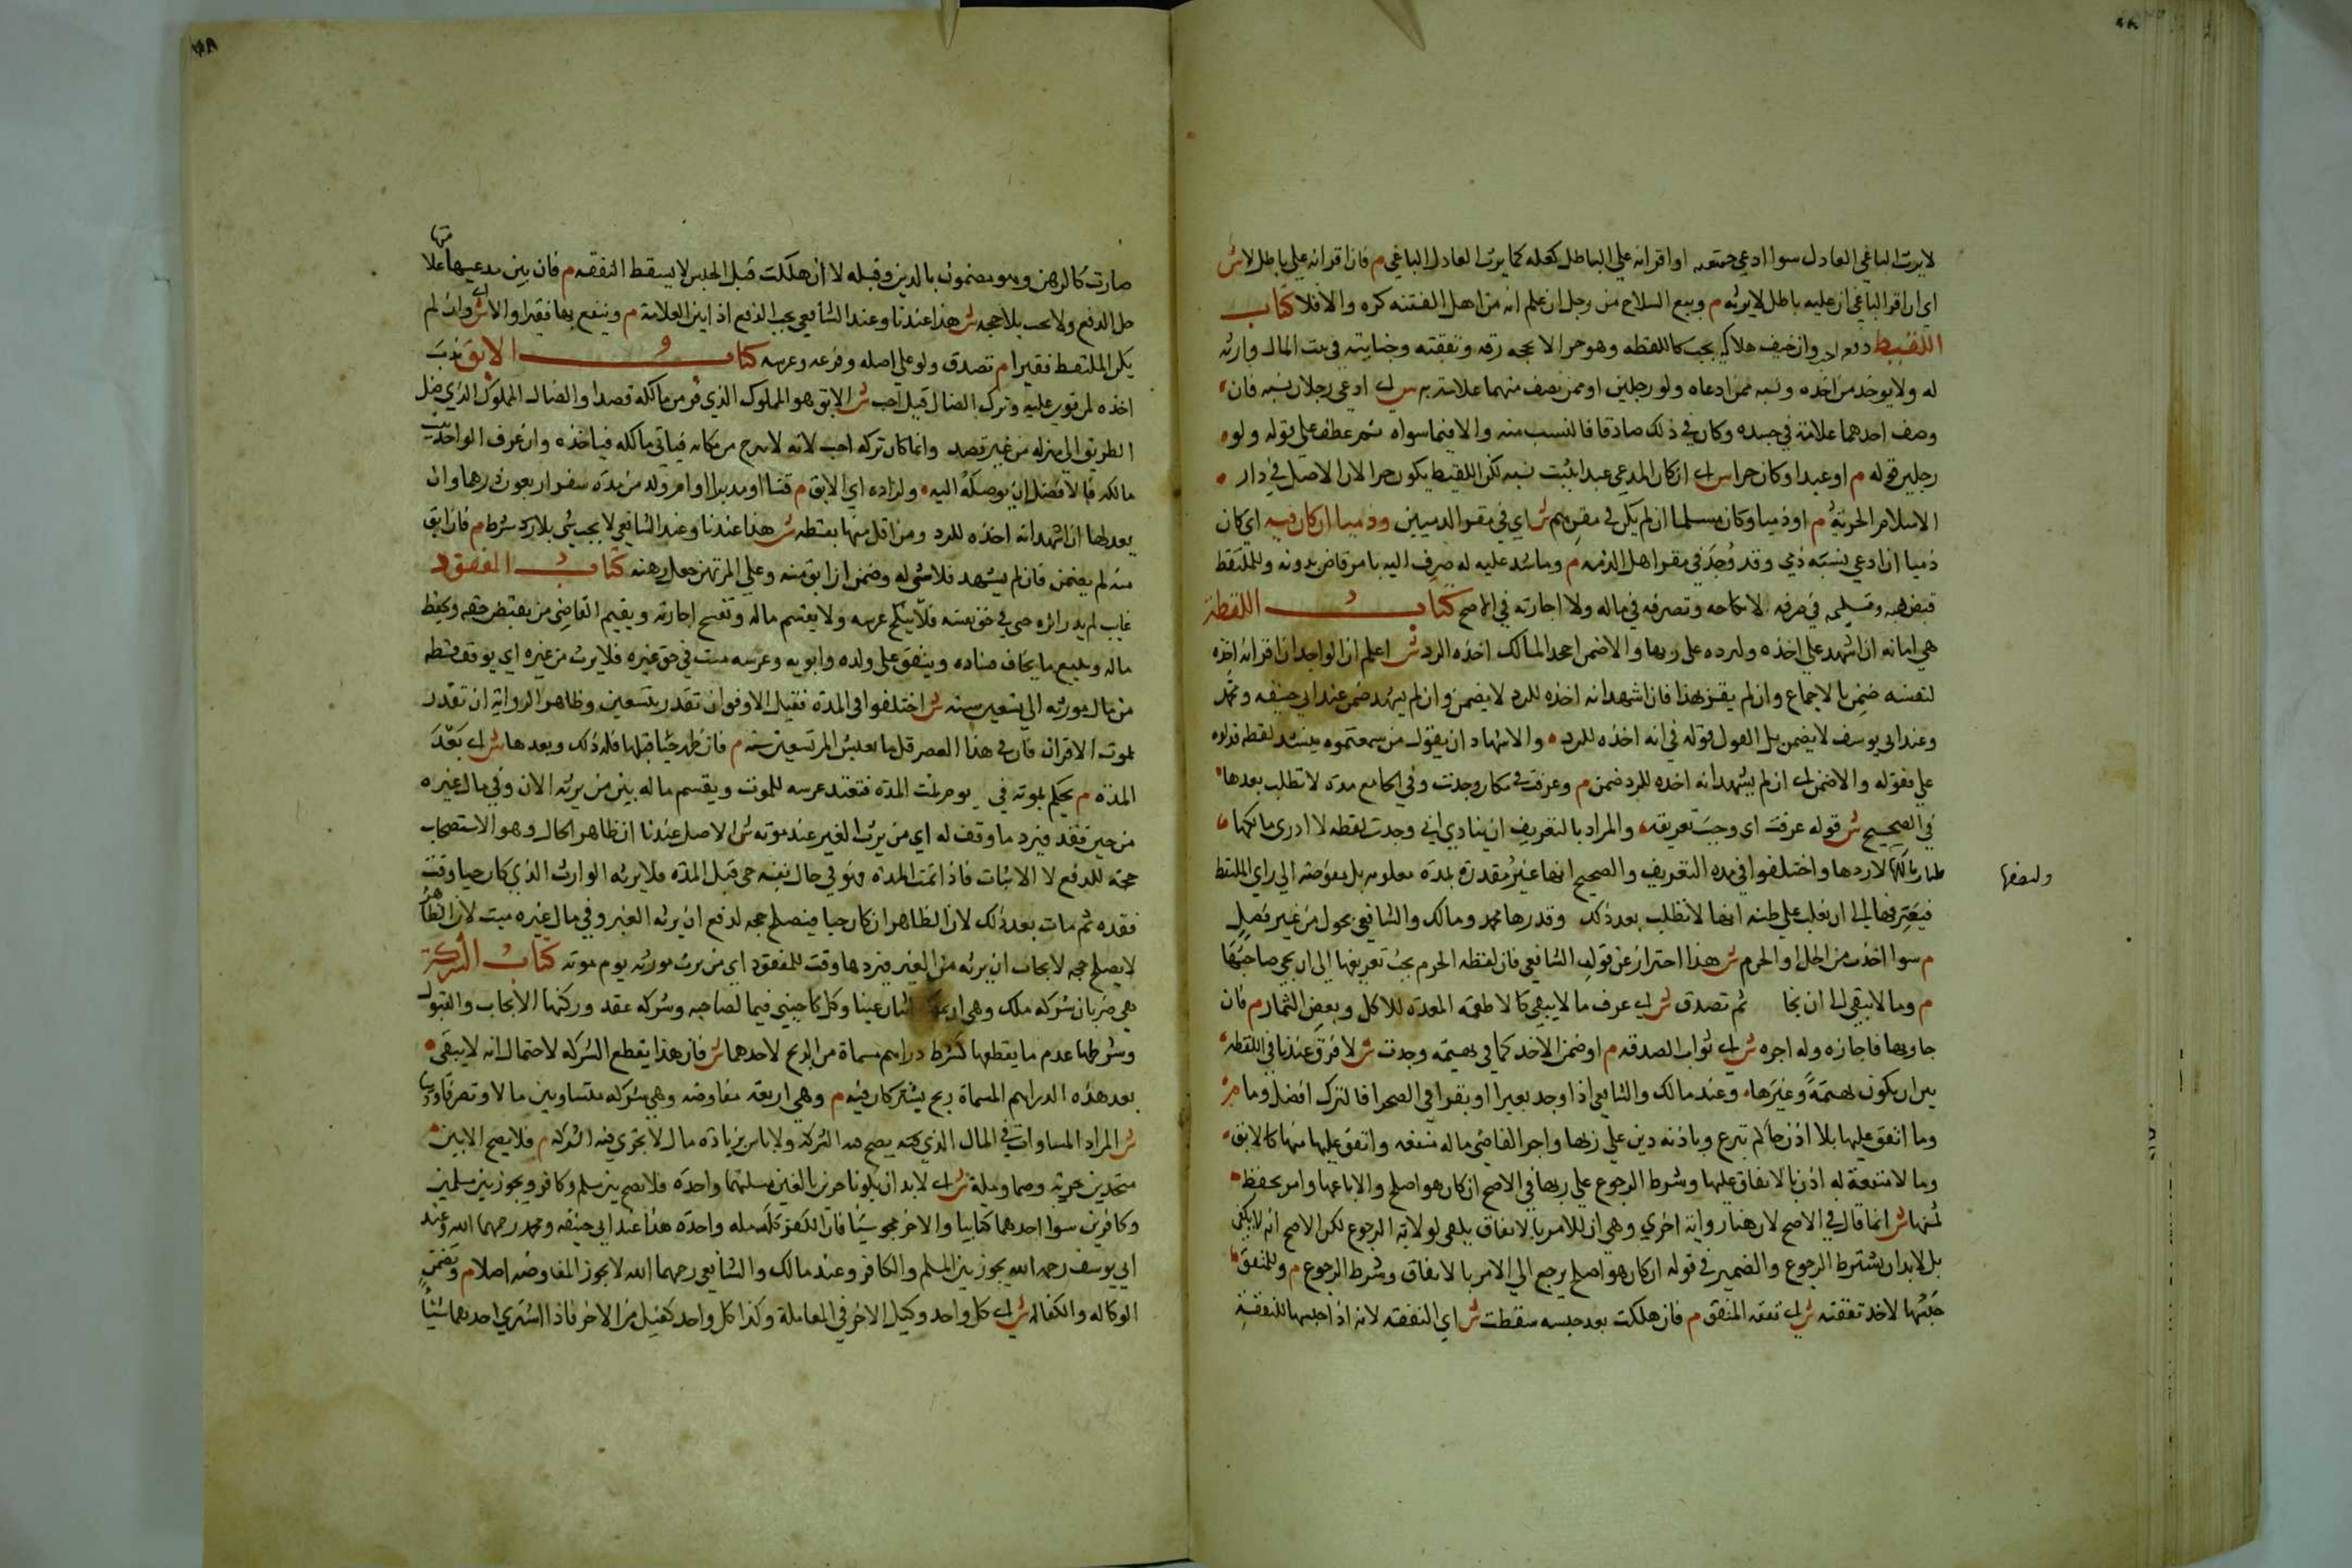 لا يرث الباغي العادل سوا ادعي حقيته او اقر انه علي الباطل كقتله كما يرث العادل الباغي م فان اقر انه علي باطل لا ش
اي ان اقر الباغي انه عليه باطل لا يرثه م وبيع السلاح من رجل ان علم انه من اهل الفتنه كره والا فلا كتاب
اللقيط رفعه احب وان خيف هلاكه يجب كاللقطه وهو حر الا بحجه رقه ونفقته وجنايته في بيت المال وارثه
له ولا يوخذ من اخذه ونسبه ممن ادعاه ولو رجلين او ممن يصف منهما علامته به ش اي ادعي رجلان نسبه فان
وصف احدهما علامة في جسده وكان في ذلك صادقا فالنسب منه والا فهما سواه ثم عطف علي قوله ولو
رجلين قوله م او عبدا وكان حرا ش اي ان كان المدعي عبدا يثبت نسبه لكن اللقيط يكون حرا لان الاصل في دار
الاسلام الحرية م او ذميا وكان مسلما ان لم يكن في مقرهم ش اي في مقر الذميين وذميا ان كان فيه اي كان
ذميا ان ادعي نسبه ذمي وقد وجد في مقر اهل الذمه م وما شد عليه له صرف اليه بامر قاض بدونه وللملتقط
قبض هبه وتسليمه في حرفه لا نكاحه وتصرفه في ماله ولا اجارته في الاصح كتاب اللقطة
هي امانه ان اشهد علي اخذه ليرده علي ربها والا ضمن ان جحد المالك اخذه للرد ش اعلم ان الواجد ان اقر انه اخذه
لنفسه ضمن بالاجماع وان لم يقر بهذا فان اشهد انه اخذه للرد لا يضمن وان لم يشهد ضمن عند ابي حنيفه ومحمد
وعند ابي يوسف لا يضمن بل القول قوله في انه اخذه للرد والاشهاد ان يقول من سمعتموه ينشد لقطه فدلوه
علي فقوله والا ضمن اي ان لم يشهد انه اخذه للرد ضمن م وعرفت في مكان وجدت وفي المجامع مدة لا تطلب بعدها
في الصحيح ش قوله عرفت اي وجب تعريفه والمراد بالتعريف ان ينادي اني وجدت لقطه لا ادري مالكها
فليات مالكها لاردها واختلفوا في مدة التعريف والصحيح انها غير مقدرة بمدة معلومه بل مفوضة الي راي الملتقط
وليصفها
فيعرفها الي ان يغلب علي ظنه انها لا تطلب بعد ذلك وقدرها محمد ومالك والشافعي بحول من غير فصل
م سوا اخذت من الحل او الحرم ش هذا احتراز عن قول الشافعي فان لقطه الحرم يجب تعريفها الي ان يجي صاحبها
م وما لا يبقي الي ان يخا ثم تصدق ش اي عرف ما لا يبقي كالاطعمة المعدة للاكل وبعض الثمار م فان
جا ربها فاجازه وله اجره ش اي ثواب الصدقه م او ضمن الاخذ كما في بهيمه وجدت ش لا فرق عندنا في اللقطه
بين ان يكون بهيمة وغيرها وعند مالك والشافعي اذا وجد بعيرا او بقرا في الصحرا فالترك افضل وما م
وما انفق عليها بلا اذن حاكم تبرع وباذنه دين علي ربها واجر القاضي ما له منفعه وانفق عليها منها كالابق
وما لا منفعة له اذن بالانفاق عليها وشرط الرجوع علي ربها في الاصح ان كان هو اصلح والا باعها وامر بحفظ
ثمنها ش انما قال في الاصح لان هنا رواية اخري وهي ان للامر بالانفاق يكفي لولاية الرجوع لكن الاصح انه لا يكفي
بل لا بد ان يشترط الرجوع والضمير في قوله ان كان هو اصلح يرجع الي الامر بالانفاق وشرط الرجوع م وللمنفق
حبسها لاخذ نفقته ش اي نفقه المنفق م فان هلكت بعد حبسه سقطت ش اي النفقه لانه اذا حبسها للنفقة
صارت كالرهن وهو مضمون بالدين وقبله لا ان هلكت قبل الحبس لا يسقط النفقه م فان بين مدعيها علا
متها
حل الدفع ولا يجب بلا حجه ش هذا عندنا وعند الشافعي يجب الدفع اذا بين العلامة م وينتفع بها فقيرا والا ش اي وان لم
يكن الملتقط فقيرا م تصدق ولو علي اصله وفرعه وعرسه كتاب الابق ندب
اخذه لمن قوي عليه وترك الضال قيل احب ش الابق هو المملوك الذي فر من مالكه قصدا والضال المملوك الذي ضل
الطريق الي منزله من غير قصد وانما كان تركه احب لانه لا يبرح من مكانه فياتي مالكه فياخذه وان عرف الواجد بيت
مالكه فالافضل ان يوصله اليه ولراده اي الابق م قنا او مدبرا او ام ولد من مدة سفر اربعون درهما وان
يعدلها ان اشهد انه اخذه للرد ومن اقل منها بقسطه ش هذا عندنا وعند الشافعي لا يجب شي بلا رد شرط م فان ابق
منه لم يضمن فان لم يشهد فلا شي له وضمن ان ابق منه وعلي المرتهن جعل رهنه كتاب المفقود
غايب لم يدر اثره حي في حق نفسه فلا ينكح عرسه ولا يقسم ماله ولا تفسخ اجارته ويقيم القاضي من يقبض حقه ويحفظ
ماله ويبيع ما يخاف فساده وينفق علي ولده وابويه وعرسه ميت في حق غيره فلا يرث من غيره اي يوقف قسطه
من مال مورثه الي تسعين سنه ش اختلفوا في المدة فقيل الاوفق ان تقدر بتسعين وظاهر الرواية ان تقدر
بموت الاقران فان في هذا العصر قل ما يعيش المر تسعين سنه م فان ظهر حيا قبلها فله ذلك وبعدها ش اي بعد
المدة م يحكم بموته في يوم تمت المدة فتعتد عرسه للموت ويقسم ماله بين من يرثه الان وفي مال غيره
من حين فقد فيرد ما وقف له اي من يرث الغير عند موته ش الاصل عندنا ان ظاهر الحال وهو الاستصحاب
حجة للدفع لا الاثبات فاذا تمت المدة فهو في حال نفسه حي قبل المدة فلا يرثه الوارث الذي كان حيا وقت
فقده ثم مات بعد ذلك لان الظاهر ان كان حيا فيصلح حجه لدفع ان يرثه الغير وفي مال غيره ميت لان الظاهر
لا يصلح حجه لايجاب ان يرثه من الغير فيردها وقت للمفقود اي من يرث مورثه يوم موته كتاب الشركة
هي ضربان شركه ملك وهي ان يملك اثنان عينا وكل كاجنبي فيما لصاحبه وشركه عقد وركنها الايجاب والقبول
وشرطها عدم ما يقطعها كشرط دراهم مسماة من الربح لاحدهما ش فان هذا يقطع الشركه لاحتمال انه لا يبقي
بعد هذه الدراهم المسماة ربح يشتركان فيه م وهي اربعه مفاوضه وهي شركه متساويين مالا وتصرفا ودينا
ش المراد المساواة في المال الذي يصح به الشركة ولا باس بزيادة مال لا يجري فيه الشركه م فلا يصح الا بين
متحدين حرية وصما وملة ش اي لا بد ان يكونا حرين بالغين ملتهما واحدة فلا تصح بين مسلم وكافر ويجوز بين مسلمين
وكافرين سوا احدهما كتابيا والاخر مجوسيا فان الكفر كله مله واحدة هذا عند ابي حنيفه ومحمد رحمهما الله وعند
ابي يوسف رحمه الله يجوز بين المسلم والكافر وعند مالك والشافعي رحمهما الله لا يجوز المفاوضه اصلا م وتضمن
الوكاله والكفاله ش اي كل واحد وكيل الاخر في المعاملة وكذا كل واحد كفيل من الاخر فاذا اشتري احدهما شيئا